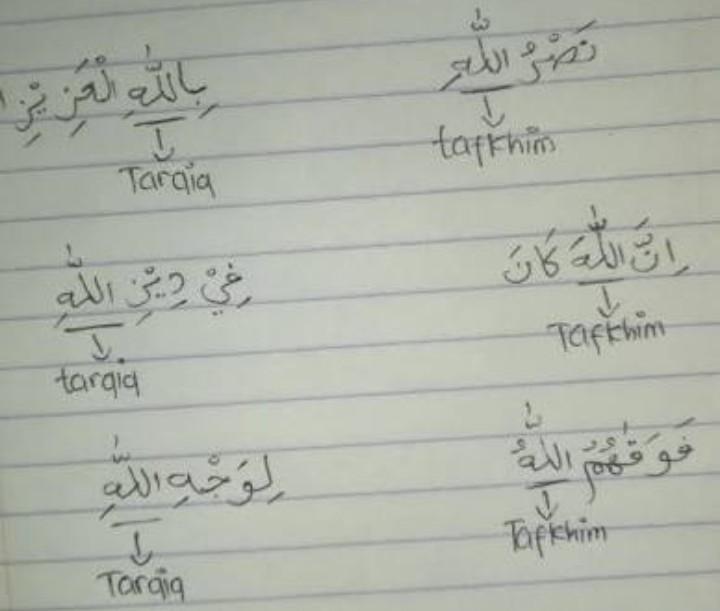 نَصْرُ اللّٰهِ
tafkhim
بِاللّٰهِ الْعَزِيْزِ
Tarqiq
اِنَّ اللّٰهَ كَانَ
Tafkhim
فِيْ دِيْنِ اللّٰهِ
tarqiq
فَوَقَهُمُ اللّٰهُ
Tafkhim
لِوَجْهِ اللّٰهِ
Tarqiq